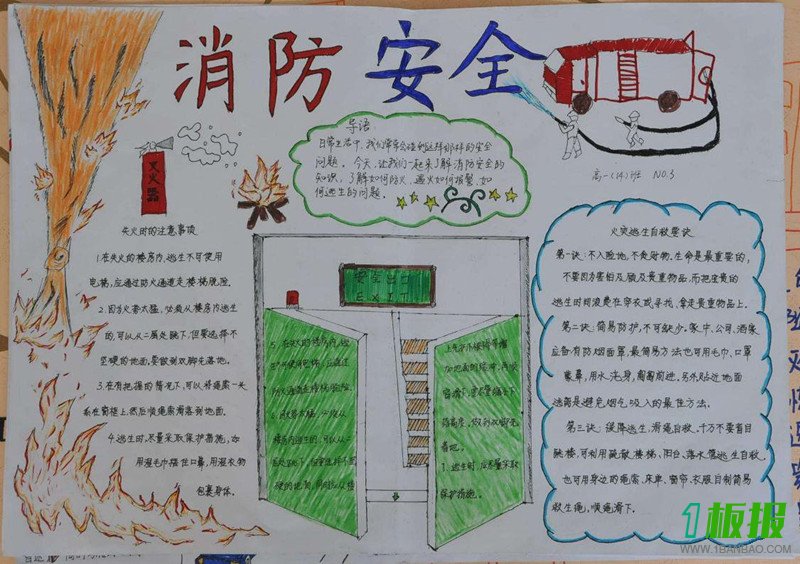 消防安全
导语
日常生活中，我们常常会碰到这样那样的安全
问题。今天，让我们一起来了解消防安全的
知识，了解如何防火，遇火如何报警，如
何逃生的问题。
高一(14)班 NO.3
灭火器
失火时的注意事项
1.在失火的楼房内，逃生不可使用
电梯，应通过防火通道走楼梯脱险。
2.因为火势太猛，必须从楼房内逃生
的，可以从二层处跳下，但要选择不
坚硬的地面，
双脚先落地。
3.在有把握的情况下，可以将绳索一头
系在窗框上，然后顺绳索滑落到地面。
4.逃生时，尽量采取保护措施，如
用湿毛巾捂住口鼻，用湿衣物
包裹身体。
安全出口
EXIT
5.在失火的楼房内，逃
生不可使用电梯，应通过
防火通道走楼梯脱险
楼房内逃生的，可以从二
层处跳下，但要选择不坚
硬的地面，同时应从楼
上先扔下被褥等增
加地面的缓冲，再顺
窗滑下，要尽量缩小下
落高度，做到双脚先
落地。
7.逃生时，应尽量采取
保护措施。
火灾逃生自救要诀
第一诀：不入险地，不贪财物。生命是最重要的，
不要因为害怕及顾及贵重物品，而把宝贵的
逃生时间浪费在穿衣或寻找、拿走贵重物品上。
第二诀：简易防护，不可缺少。家中、公司、酒家
应备有防烟面罩，最简易方法也可用毛巾、口罩
蒙鼻，用水浇身，匍匐前进。另外贴近地面
逃离是避免烟气吸入的最佳方法。
第三诀：缓降逃生，滑绳自救。千万不要盲目
跳楼，可利用疏散楼梯、阳台、落水管逃生自救。
也可用身边的绳索、床单、窗帘、衣服自制简易
救生绳，顺绳滑下。
1板报
WWW.1BANBAO.COM